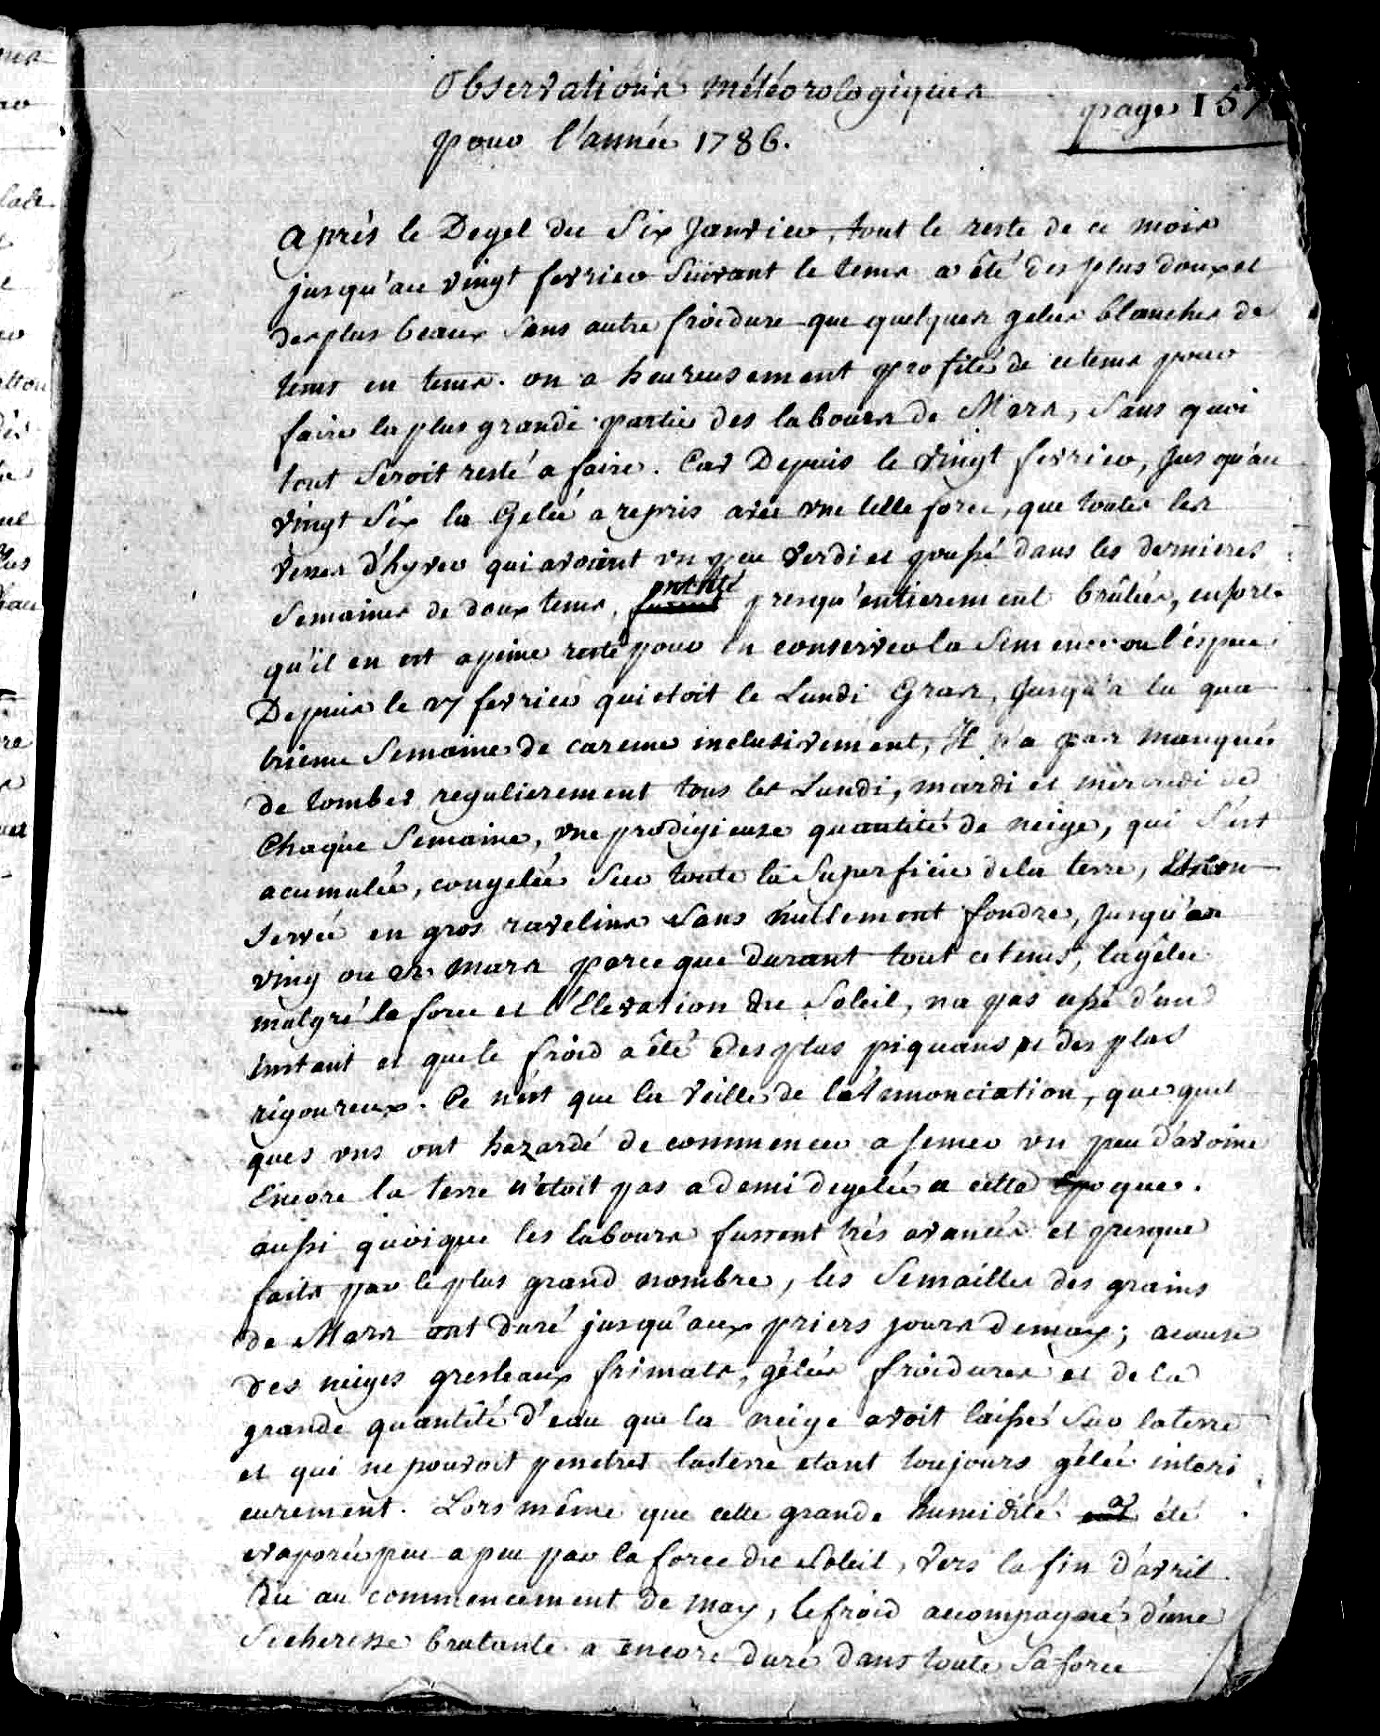 Observations météorologiques
page 157
pour l'année 1786.
après le Degel du Six Janvier, tout le reste de ce mois
jusqu'au vingt fevrier Suivant le tems a été des plus doux et
des plus beaux Sans autre froidure que quelques gelées blanches de
tems en tems. on a heureusement profité de ce tems pour
faire la plus grande partie des labours de Mars, Sans quoi
tout Seroit resté a faire. Car Depuis le vingt fevrier, Jusqu'au
vingt Six la Gelée a repris avec une telle force, que toutes les
d'hyver qui avoient un peu verdi et poussé dans les dernieres
Semaines de doux tems, ont été presqu'entierement brûlées, ensorte
qu'il en est a peine resté pour en conserver la Semence ou l'éspece
Depuis le 27 fevrier qui etoit le Lundi Gras, Jusqu'a la qua
trieme Semaine de careme inclusivement, Il n'a pas manqué
de tomber regulierement tous les Lundi, mardi et mercredi de
Chaque Semaine, une prodigieuse quantité de neige, qui S'est
acumulée, congelée Sur toute la Superficie de la terre, Et con
servée en gros ravelins Sans nullement fondre, Jusqu'au
ving ou 22 mars parce que durant tout ce tems, la gêlée
malgré la force et l'Elevation du Soleil, na pas cessé d'un
instant et que le froid a été des plus piquans et des plus
rigoureux. Ce n'est que la Veille de l'Annonciation, que quel
ques uns ont hazardé de commencer a semer un peu d'avoine
Encore la terre n'étoit pas a demi degelée a cette Epoque.
aussi quoique les labours fussent très avancés et presque
faits par le plus grand nombre, les Semailles des grains
de Mars ont duré jusqu'aux priers jours de may; a cause
des neiges gresleaux frimats, gêlées froidures et de la
grande quantité d'eau que la neige avoit laissé Sur la terre
et qui ne pouvoit penetrer la terre etant toujours gélée interi
eurement. Lors même que cette grande humidité a été
evaporée peu a peu par la force du Soleil, vers la fin d'avril
Ou au commencement de may, le froid accompagné d'une
Secheresse brulante a encore duré dans toute Sa force